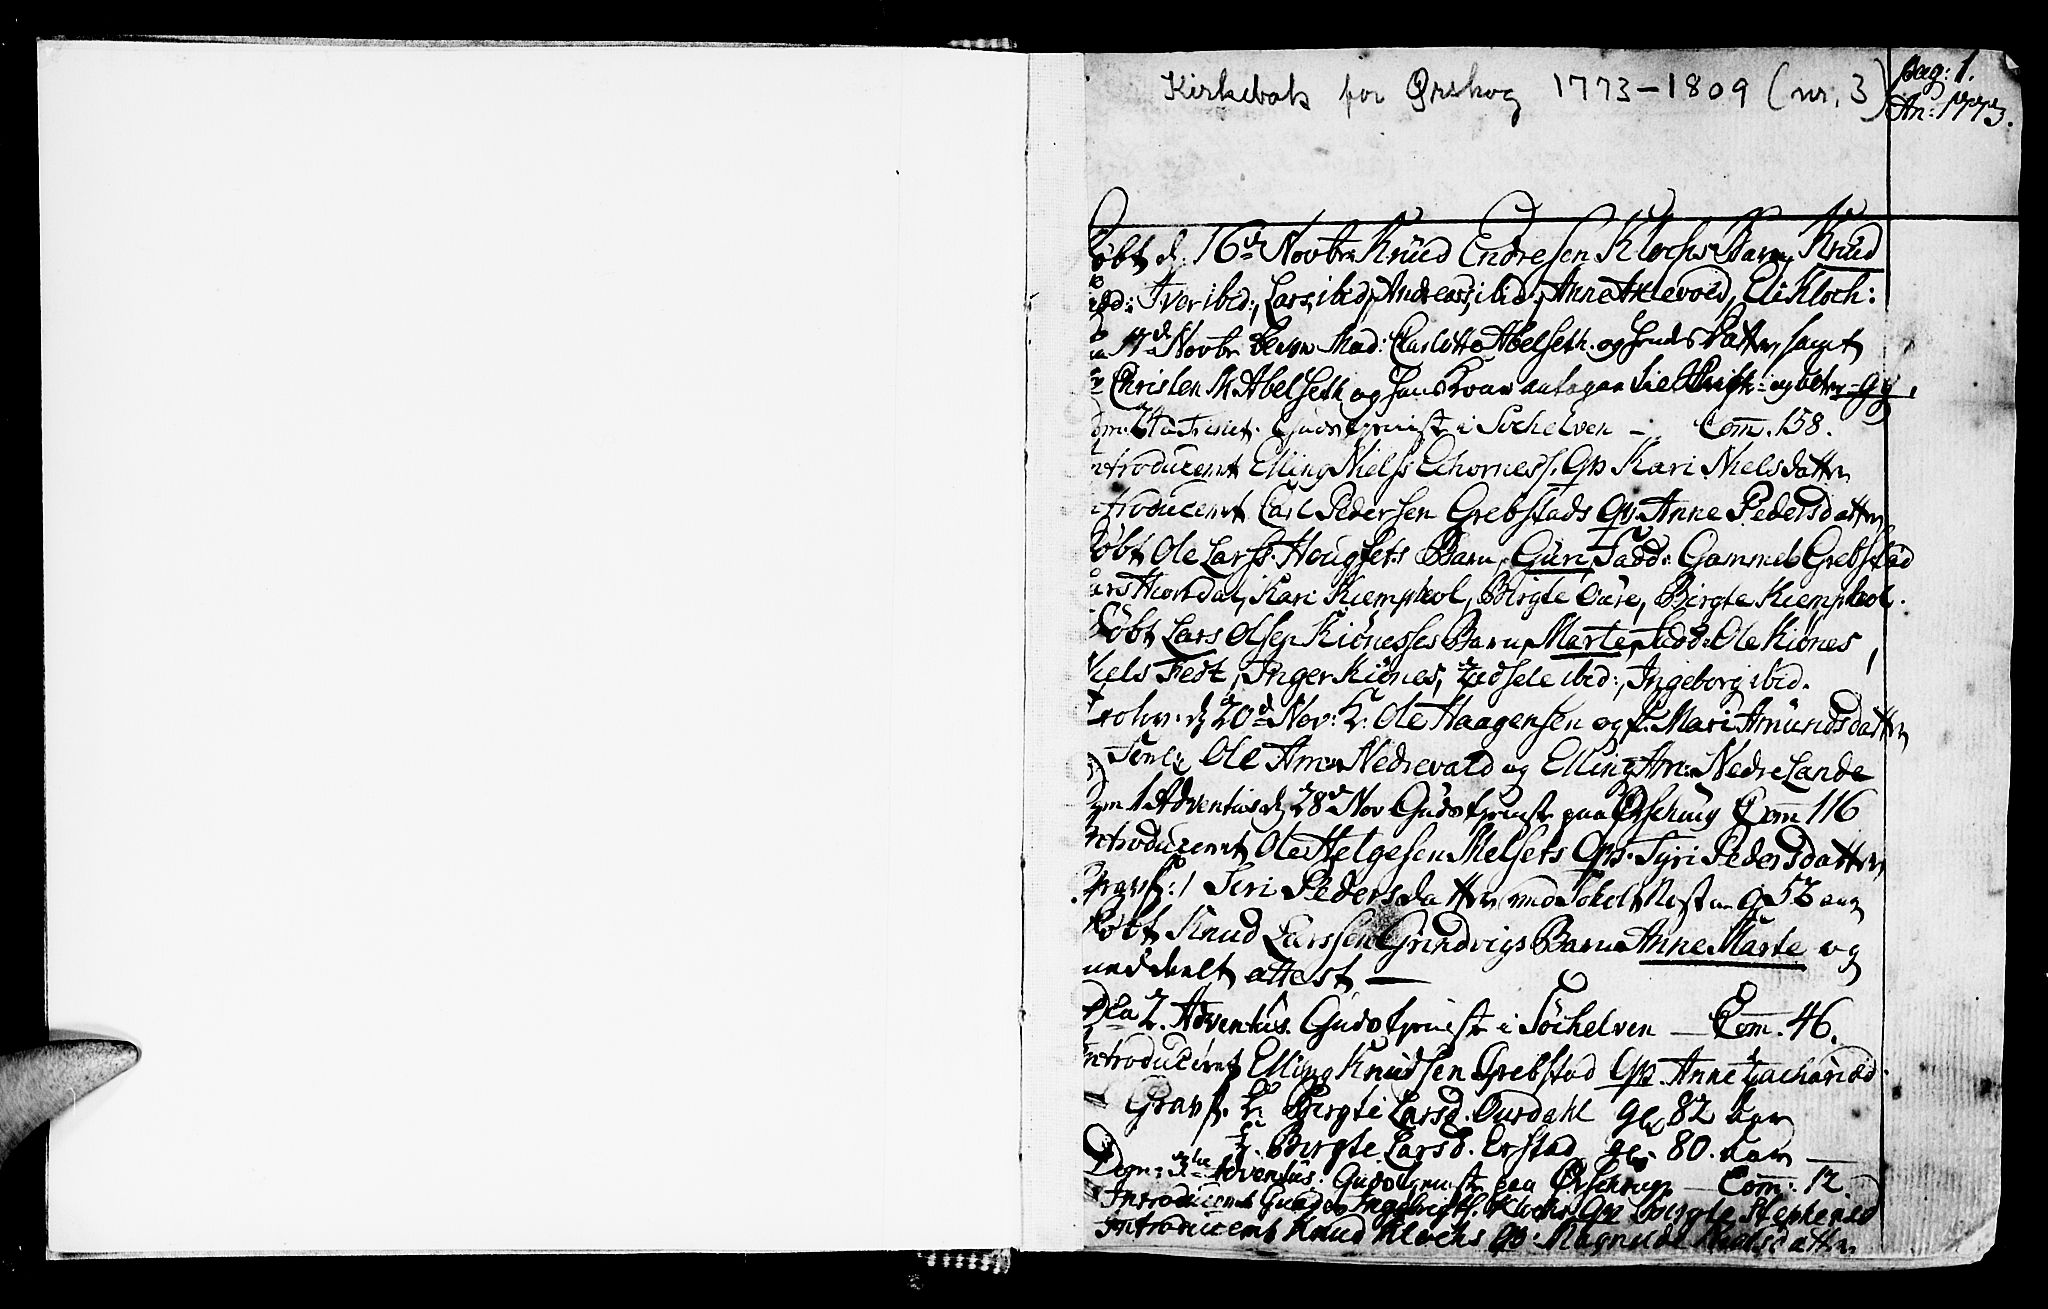 Kirkebok for Ørskog 1773-1809 (nr. 3)
pag: 1.
An: 1773.
Døbt d. 16de Novbr Knud Endresen Klochs Barn Knud
Fadd: Iver ibid:, Lars ibid, Andreas ibid, Anne Aklevold, Eli Kloch:
17de Novbr Mad: Charlotte Abelseth og hendes Datter, samt
Christen M Abelseth og hans Kone
24 Trinit. Gudstjenist i Söchelven — Com. 158.
Introduceret Elling Niels: Echornes. Qv Kari Nielsdatter
Introduceret Carl Pedersen Grebstads Qv. Anne Pedersdatter
Døbt Ole Larss. Hougsets Barn, Guri, Fadd: Gammel Grebstad
Lars Hiortdal, Kari Kiemphol, Birgte Oure, Birgte Kiemphol.
Döbt Lars Olsen Kiönesses Barn, Marte, Fadd: Ole Kiönes,
Niels Fedt, Inger Kiönes, Zidsele ibid:, Ingeborg ibid.
Trolov. d. 20de Nov: K. Ole Haagensen og P. Mari Amundsdatter
Forl: Ole Am: Nedrevald og Elling Am: Nedre Lande
Dom 1 Adventus d. 28de Nov Gudstjenist paa Ørschoug Com 116
Introduceret Ole Helgesen Melsets Qv. Syri Pedersdatter
Gravf: Siri Pedersdatter 52 aar
Døbt Knud Larssen Grindvigs Barn Anne Marte og
meddeelt attest —
Dca 2. Adventus. Gudstjenist i Söchelven — Com. 46.
Introduceret Elling Knudsen Grebstad Qv. Anne Zachariæd.
Gravf. Birgte Larsd. Ourdahl gl 82 aar
Birgte Larsd. Erstad gl. 80. aar —
Dom: 3tie Adventus. Gudstjenist paa Ørschoug — Com: 12.
Introduceret Gunder Ingebrigts. Klochs Qv Birgte Stephensd
Introduceret Knud Klochs Qv: Magnilde Nielsdatter